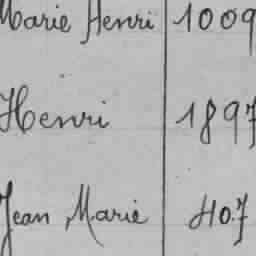 Marie Henri 1009
Henri 1897
Jean Marie 407